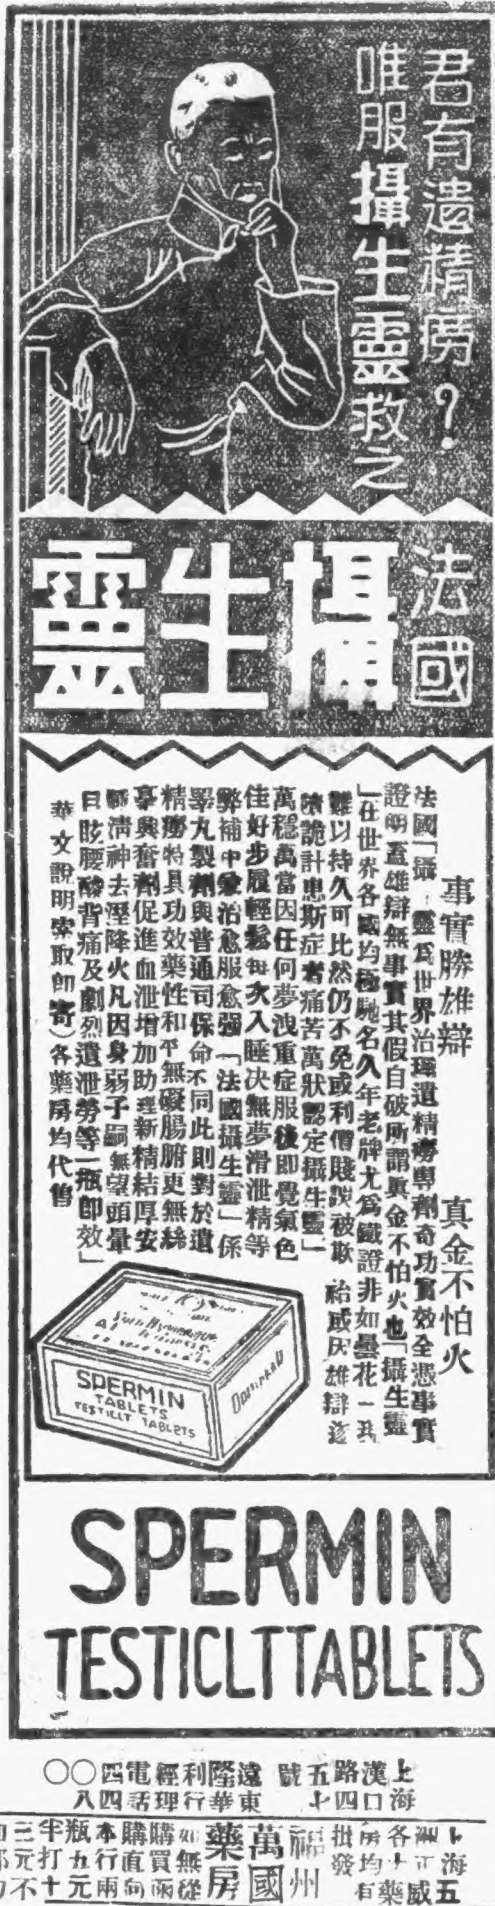 君有遺精癆?
唯服攝生靈救之
法國
攝生靈
事實勝雄辯 真金不怕火
法國「攝 靈爲世界治 遺精癆 劑奇功實效全憑事實
證明蓋雄辯無事實其假自破所謂眞金不怕火也「攝生靈
」在世界各國均極馳名久年老牌尤爲鐵證非如曇花一
難以持久可比然仍不免或利價賤 被欺 或 雄辯
詭計患斯症者痛苦萬狀認定攝生靈」
萬穩萬當因任何夢洩重症服後即覺氣色
佳好步履輕鬆每次入睡決無夢滑泄精等
弊補中 治愈服愈强「法國攝生靈」係
睪丸製劑與普通司保命不同此則對於遺
精癆特具功效藥性和平無礙腸腑更無絲
毫興奮劑促進血泄增加助 新精結厚安
清神去溼降火凡因身弱子嗣無望頭暈
目眩腰酸背痛及劇烈遺泄勞等一瓶即效」
華文說明索取即寄)各藥房均代售
SPERMIN
TABLETS
TESTICLT TABLETS
SPERMIN
TESTICLTTABLETS
上海
漢口
路四
五十
號
遠東
隆華
利行
經理
電話
四四
〇八
〇
上海五
各大藥
房均有
批發
福州
萬國
藥房
如無從
購買
購直向
本行兩
瓶五元
半打十
三元不